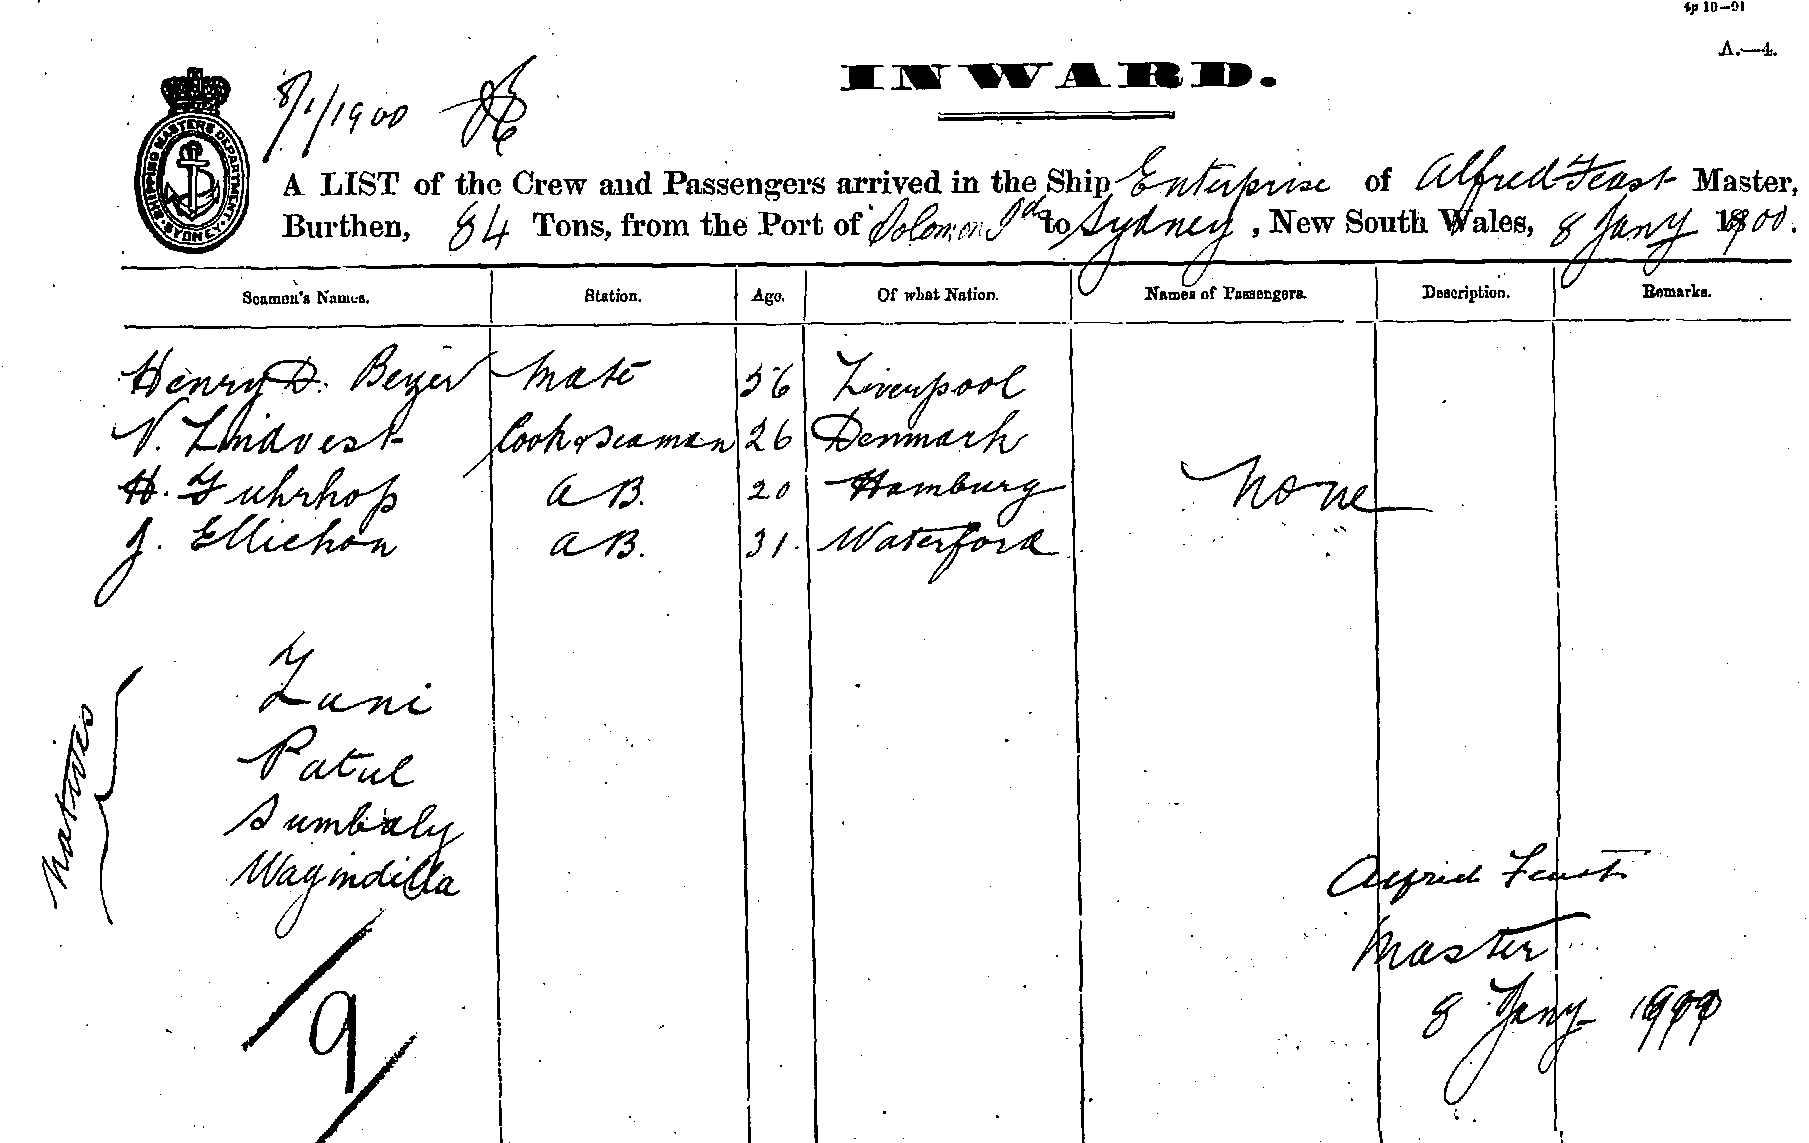 4p 10—91
A.—4.
INWARD.
8/1/1900
SHIPPING MASTERS DEPARTMENT SYDNEY
A LIST of the Crew and Passengers arrived in the Ship Enterprise of Alfred Feast Master,
Burthen, 84 Tons, from the Port of Solomon Ids to Sydney, New South Wales, 8 Jany 1900.
Seamen's Names. Station. Age. Of what Nation. Names of Passengers. Description. Remarks.
Henry D. Beyer Mate 56 Liverpool
N. Lindvest Cook & Seaman 26 Denmark
H. Fuhrhop A B. 20 Hamburg
None
J. Ellichon A B. 31. Waterford
Natives
Zuni
Patul
Sumbaly
Wagindilla
Alfred Feast
Master
8 Jany 1900
9